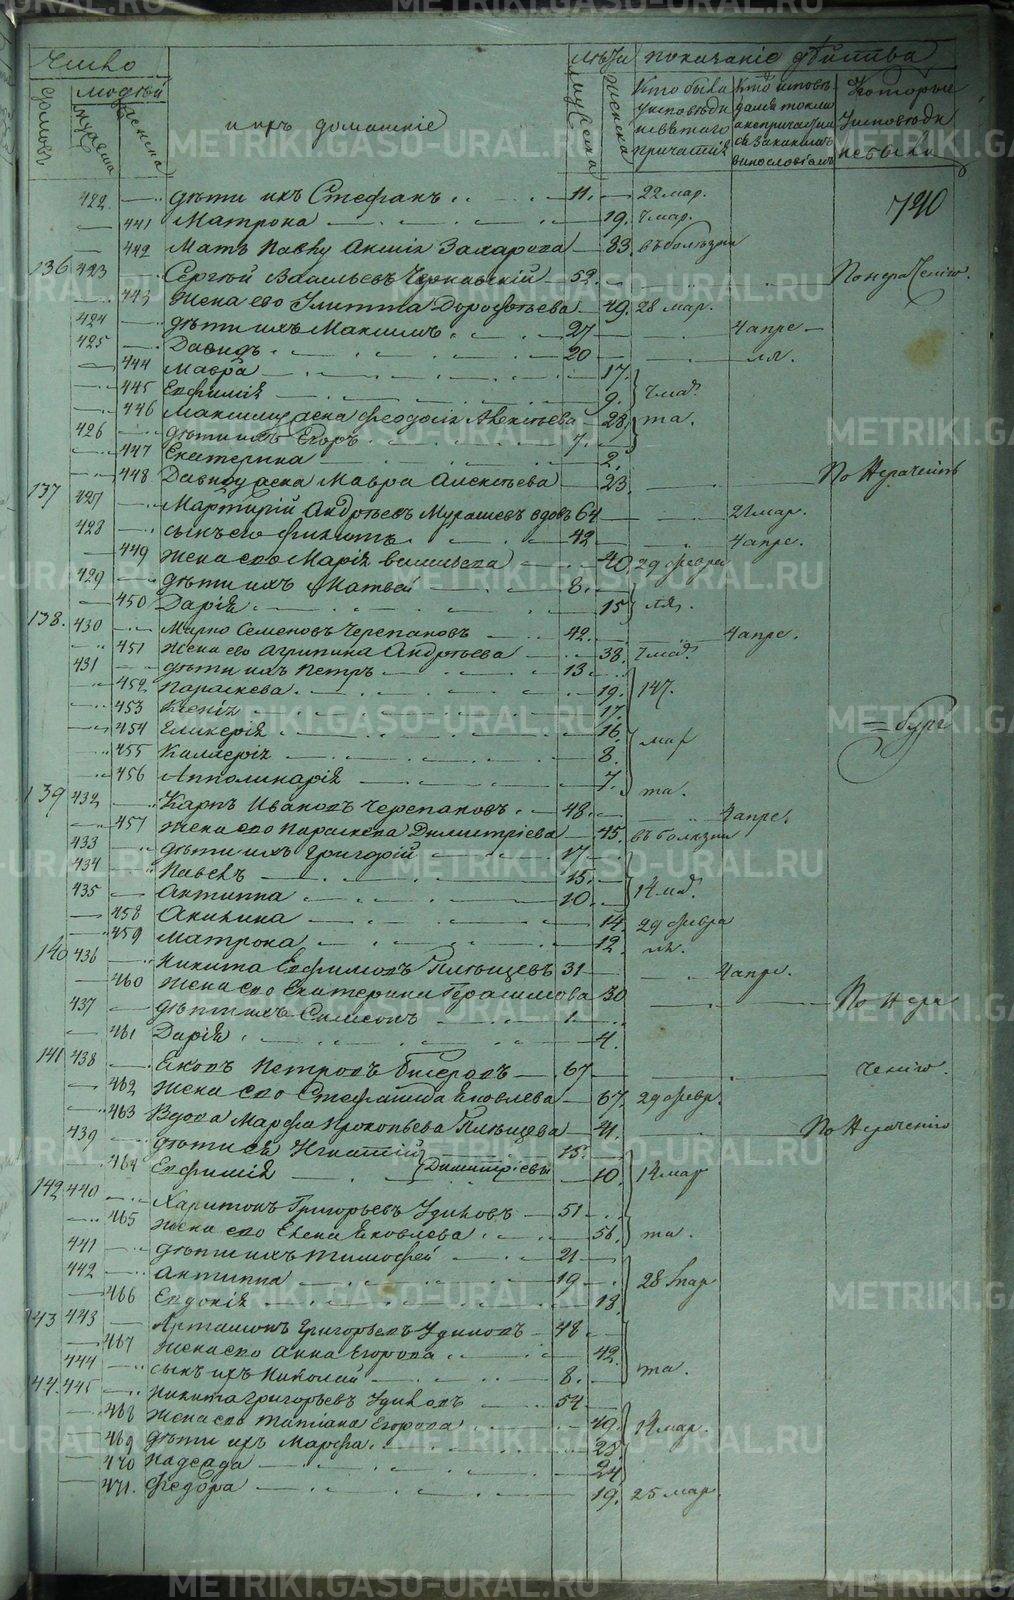 Число
Лѣта
показаніе дѣйства
домовъ
людей
мужеска
женска
и ихъ домашніе
мужска
женска
Кто были у исповѣди и святаго причастія
Кто исповѣдался токмо а не причастился и за какимъ винословіемъ
Которые у исповѣди не были
422 дѣти ихъ Стефанъ 11. 22 мар.
190
441 Матрона 19. 7 мар.
442 Мать Павлу Аксинія Захарова 83. въ болѣзни
136 423 Сергѣй Васильевъ 52. По нераченію.
443 жена его Улитта Дорофѣева 49. 28 мар.
424 дѣти ихъ Максимъ 27 4 апре
425 Давидъ 20 ля.
444 Мавра 17.
445 Евфимія 9. 7 мар
446 Максиму жена Феодосія Алексѣева 28 та.
426 дѣти ихъ Егоръ 7.
447 Екатерина 2.
448 Давиду жена Мавра Алексѣева 23. По Нераченію
137 427 Мартирій Андреевъ Мурашевъ вдовъ 64 21 мар.
428 сынъ его Филиппъ 42 4 апре.
449 жена его Марія Васильева 40. 29 февра
429 дѣти ихъ Матвей 8.
450 Дарія 15 ля.
138. 430 Марко Семеновъ Черепановъ 42. 4 апре.
451 жена его Агрипина Андреева 38. 7 мар.
431 дѣти ихъ Петръ 13
452 Параскева 19. 14
453 Ксенія 17.
454 Гликерія 16. мар
455 Калерія 8.
456 Апполинарія 7. та.
139 432 Карпъ Ивановъ Черепановъ 48. 4 апре.
457 жена его Параскева Димитріева 45. въ болезни
433 дѣти ихъ Григорій 17
434 Павелъ 15.
435 Антиппа 10. 14 мар
458 Акилина 14. 29 февра
459 Матрона 12. ля.
140 436 Никита Евфимовъ Плющевъ 31 4 апре.
460 жена его Екатерина Герасимова 30 По Нера
437 дѣти ихъ Самсонъ 1.
461 Дарія 4.
141 438 Яковъ Петровъ 67 ченію.
462 жена его Стефанида Яковлева 67. 29 февр.
463 Вдова Марфа Прокопьева Плющева 41. По Нераченію
439 дѣти ея Игнатій 15.
464 Евфимія Димитріевы 10. 14 мар
142 440 Харитонъ Григорьевъ Удиловъ 51
465 жена его Елена Яковлева 56. та.
441 дѣти ихъ Тимофей 21
442 Антиппа 19 28 мар
466 Евдокія 18.
143 443 Артамонъ Григорьевъ Удиловъ 48
467 жена его Анна Егорова 42.
444 сынъ ихъ Николай 8. та.
144. 445 Никита Григорьевъ Удиловъ 54
468 жена его Татіана Егорова 49. 14 мар.
469 дѣти ихъ Марфа 25
470 Надежда 24.
471. Федора 19. 25 мар.